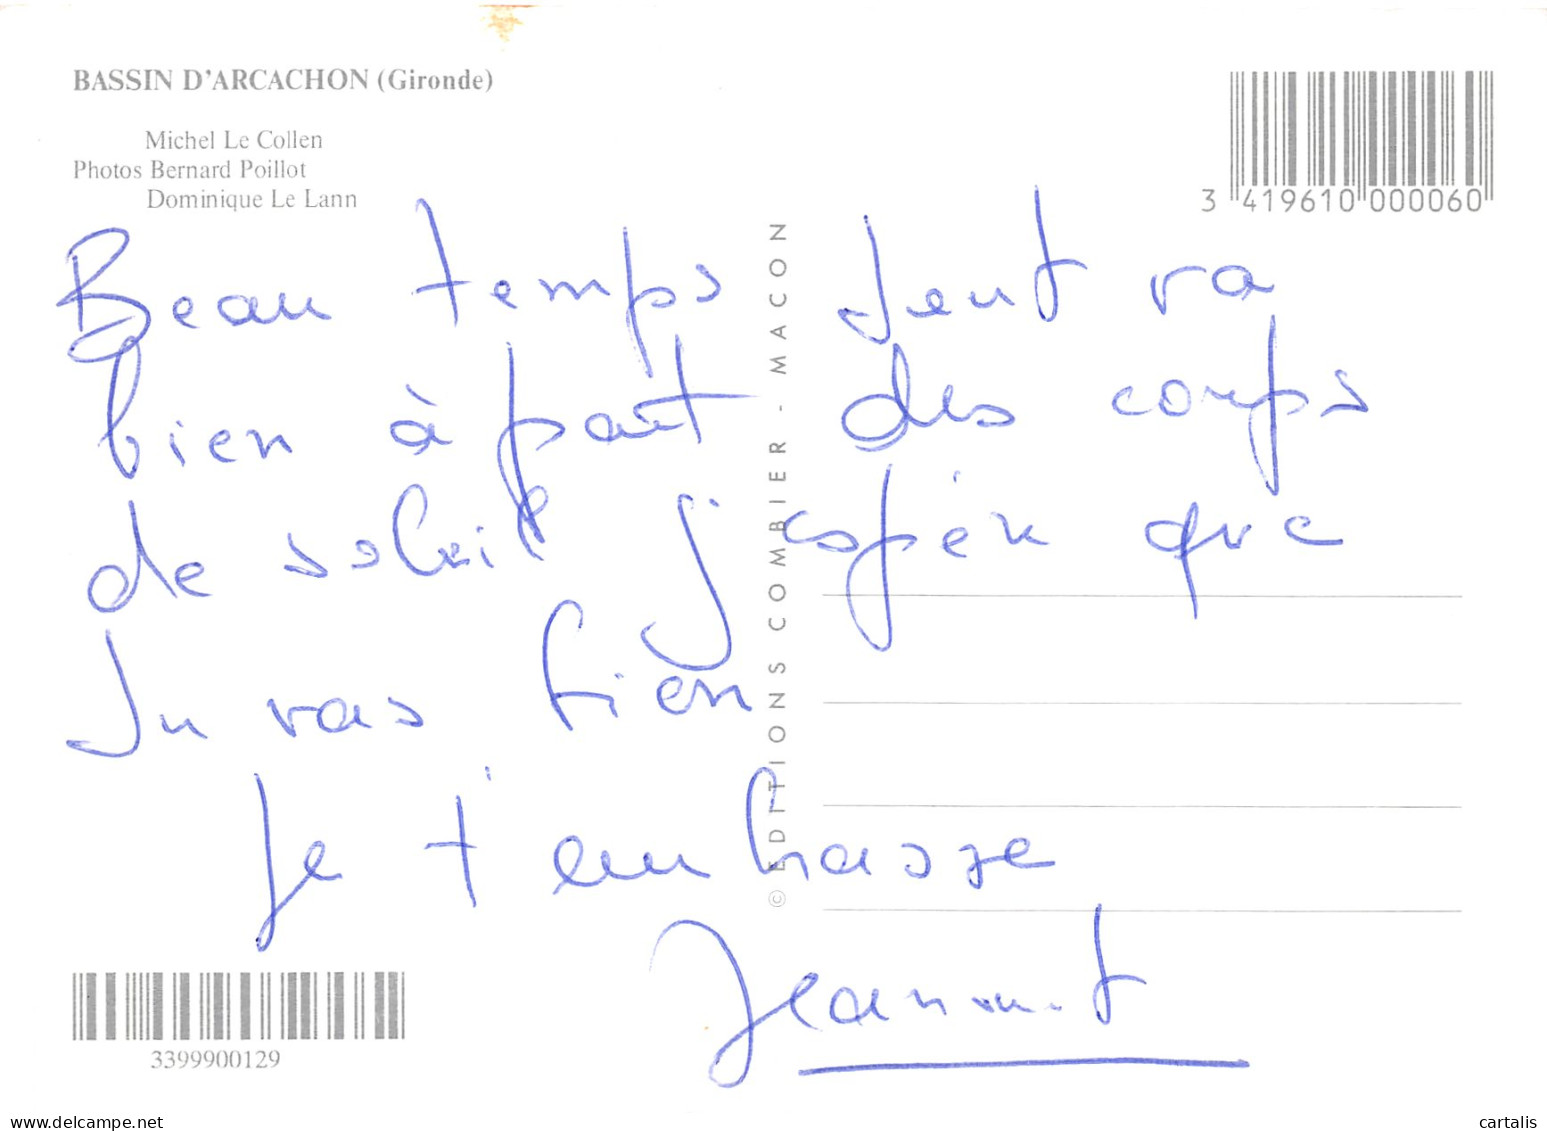 BASSIN D'ARCACHON (Gironde)
Michel Le Collen
Photos Bernard Poillot
Dominique Le Lann
3 419610 000060
Beau temps tout va
bien à part des coups
de soleil j'espère que
Tu vas bien
Je t'embrasse
Jeannot
© EDITIONS COMBIER - MACON
3399900129
www.delcampe.net
cartalis